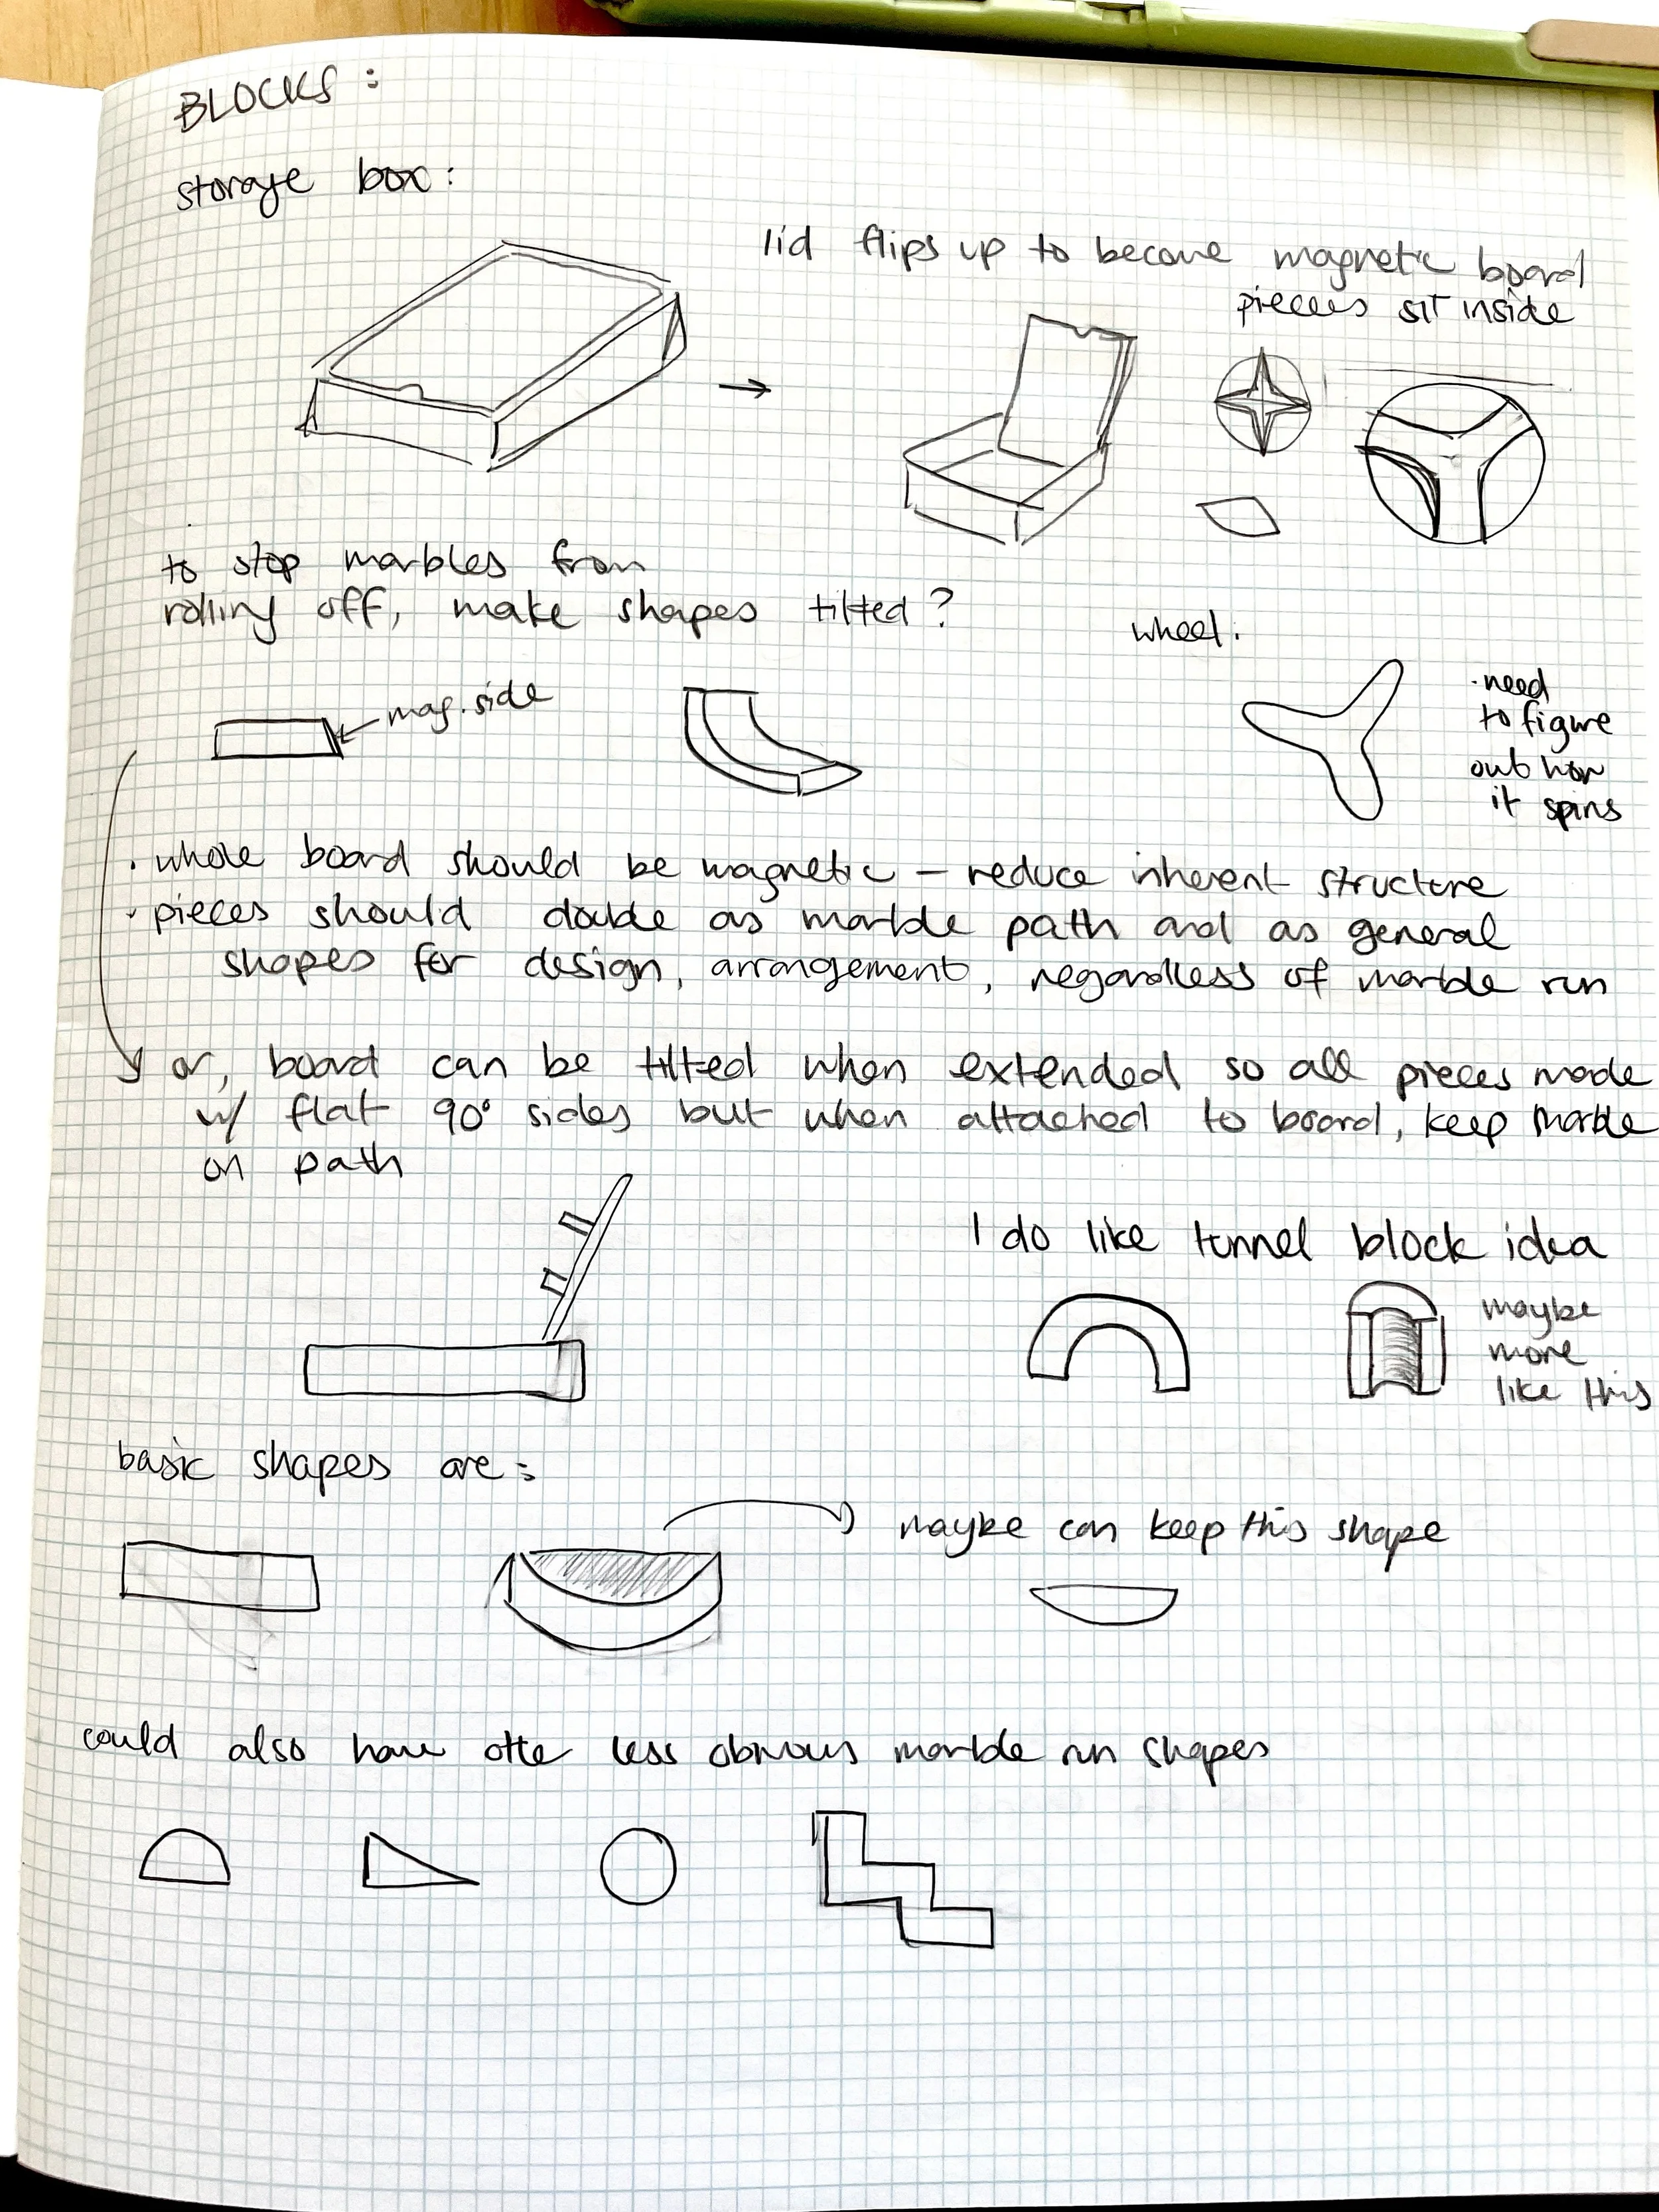 BLOCKS :
storage box :
lid flips up to become magnetic board
pieces sit inside
to stop marbles from
rolling off, make shapes tilted ?
wheel.
mag. side
· need
to figure
out how
it spins
· whole board should be magnetic – reduce inherent structure
· pieces should double as marble path and as general
shapes for design, arrangement, regardless of marble run
or, board can be tilted when extended so all pieces made
w/ flat 90° sides but when attached to board, keep marble
on path
I do like tunnel block idea
maybe
more
like this
basic shapes are :
maybe can keep this shape
could also have less obvious marble run shapes